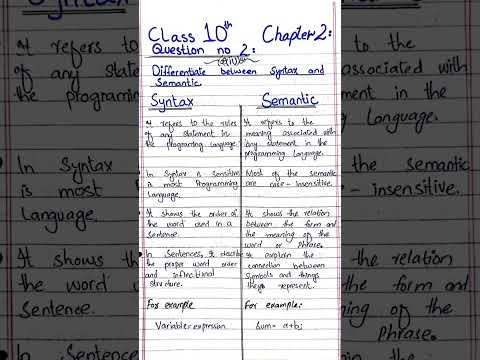 Class 10th Chapter 2:
Question no 2:
Differentiate between Syntax and
Semantic.
Syntax
It refers to the rules
of any statement in
the programing language.
In Syntax is Sensitive
is most Programming
Language.
It shows the order of
the word used in a
Sentence.
In Sentences, It describe
the proper word order
and inflectional
structure.
For example
Variable = expression
Semantic
It refers to the
meaning associated with
any statement in the
programming Language.
Most of the semantic
are case-insensitive.
It shows the relation
between the form and
the meaning of the
word or Phrase.
It explain the
connection between
Symbols and things
they represent.
For example:
Sum = a+b;